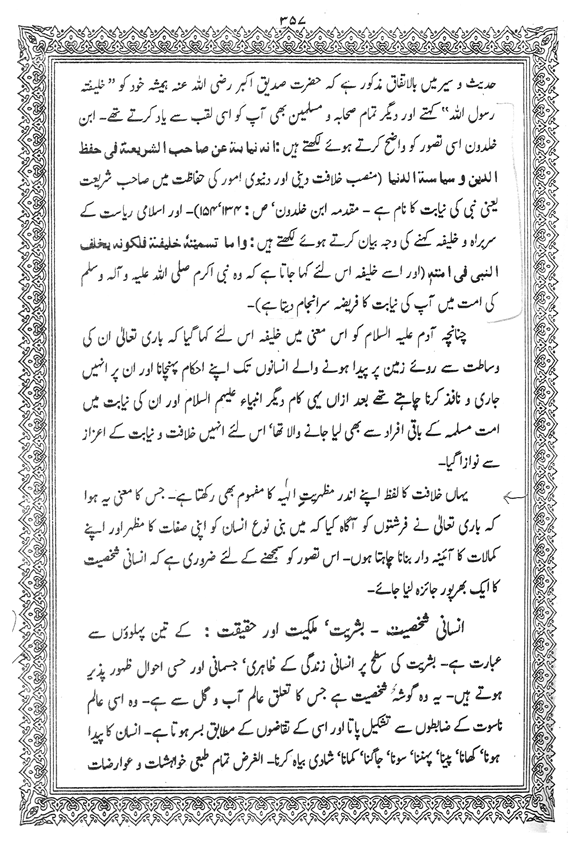 ۳۵۷
حدیث و سیر میں بالاتفاق مذکور ہے کہ حضرت صدیق اکبر رضی اللہ عنہ ہمیشہ خود کو ”خلیفتہ
رسول اللہ“ کہتے اور دیگر تمام صحابہ و مسلمین بھی آپ کو اسی لقب سے یاد کرتے تھے۔ ابن
خلدون اسی تصور کو واضح کرتے ہوئے لکھتے ہیں : انہ نیابۃ عن صاحب الشریعۃ فی حفظ
الدین و سیاسۃ الدنیا (منصب خلافت دینی اور دنیوی امور کی حفاظت میں صاحب شریعت
یعنی نبی کی نیابت کا نام ہے – مقدمہ ابن خلدون‘ ص : ۱۳۴‘ ۱۵۴)۔ اور اسلامی ریاست کے
سربراہ و خلیفہ کہنے کی وجہ بیان کرتے ہوئے لکھتے ہیں : و اما تسمیتہ خلیفۃ فلکونہ یخلف
النبی فی امتہ (اور اسے خلیفہ اس لئے کہا جاتا ہے کہ وہ نبی اکرم صلی اللہ علیہ و آلہ وسلم
کی امت میں آپ کی نیابت کا فریضہ سرانجام دیتا ہے)۔
چنانچہ آدم علیہ السلام کو اس معنی میں خلیفہ اس لئے کہا گیا کہ باری تعالیٰ ان کی
وساطت سے روئے زمین پر پیدا ہونے والے انسانوں تک اپنے احکام پہنچانا اور ان پر انہیں
جاری و نافذ کرنا چاہتے تھے بعد ازاں یہی کام دیگر انبیاء علیہم السلام اور ان کی نیابت میں
امت مسلمہ کے باقی افراد سے بھی لیا جانے والا تھا‘ اس لئے انہیں خلافت و نیابت کے اعزاز
سے نوازا گیا۔
یہاں خلافت کا لفظ اپنے اندر مظہریت الہٰیہ کا مفہوم بھی رکھتا ہے۔ جس کا معنی یہ ہوا
کہ باری تعالیٰ نے فرشتوں کو آگاہ کیا کہ میں بنی نوع انسان کو اپنی صفات کا مظہر اور اپنے
کمالات کا آئینہ دار بنانا چاہتا ہوں۔ اس تصور کو سمجھنے کے لئے ضروری ہے کہ انسانی شخصیت
کا ایک بھرپور جائزہ لیا جائے۔
انسانی شخصیت – بشریت‘ ملکیت اور حقیقت : کے تین پہلوؤں سے
عبارت ہے۔ بشریت کی سطح پر انسانی زندگی کے ظاہری‘ جسمانی اور حسی احوال ظہور پذیر
ہوتے ہیں۔ یہ وہ گوشۂ شخصیت ہے جس کا تعلق عالم آب و گل سے ہے۔ وہ اسی عالم
ناسوت کے ضابطوں سے تشکیل پاتا اور اسی کے تقاضوں کے مطابق بسر ہوتا ہے۔ انسان کا پیدا
ہونا‘ کھانا‘ پینا‘ پہننا‘ سونا‘ جاگنا‘ کمانا‘ شادی بیاہ کرنا۔ الغرض تمام طبعی خواہشات و عوارضات